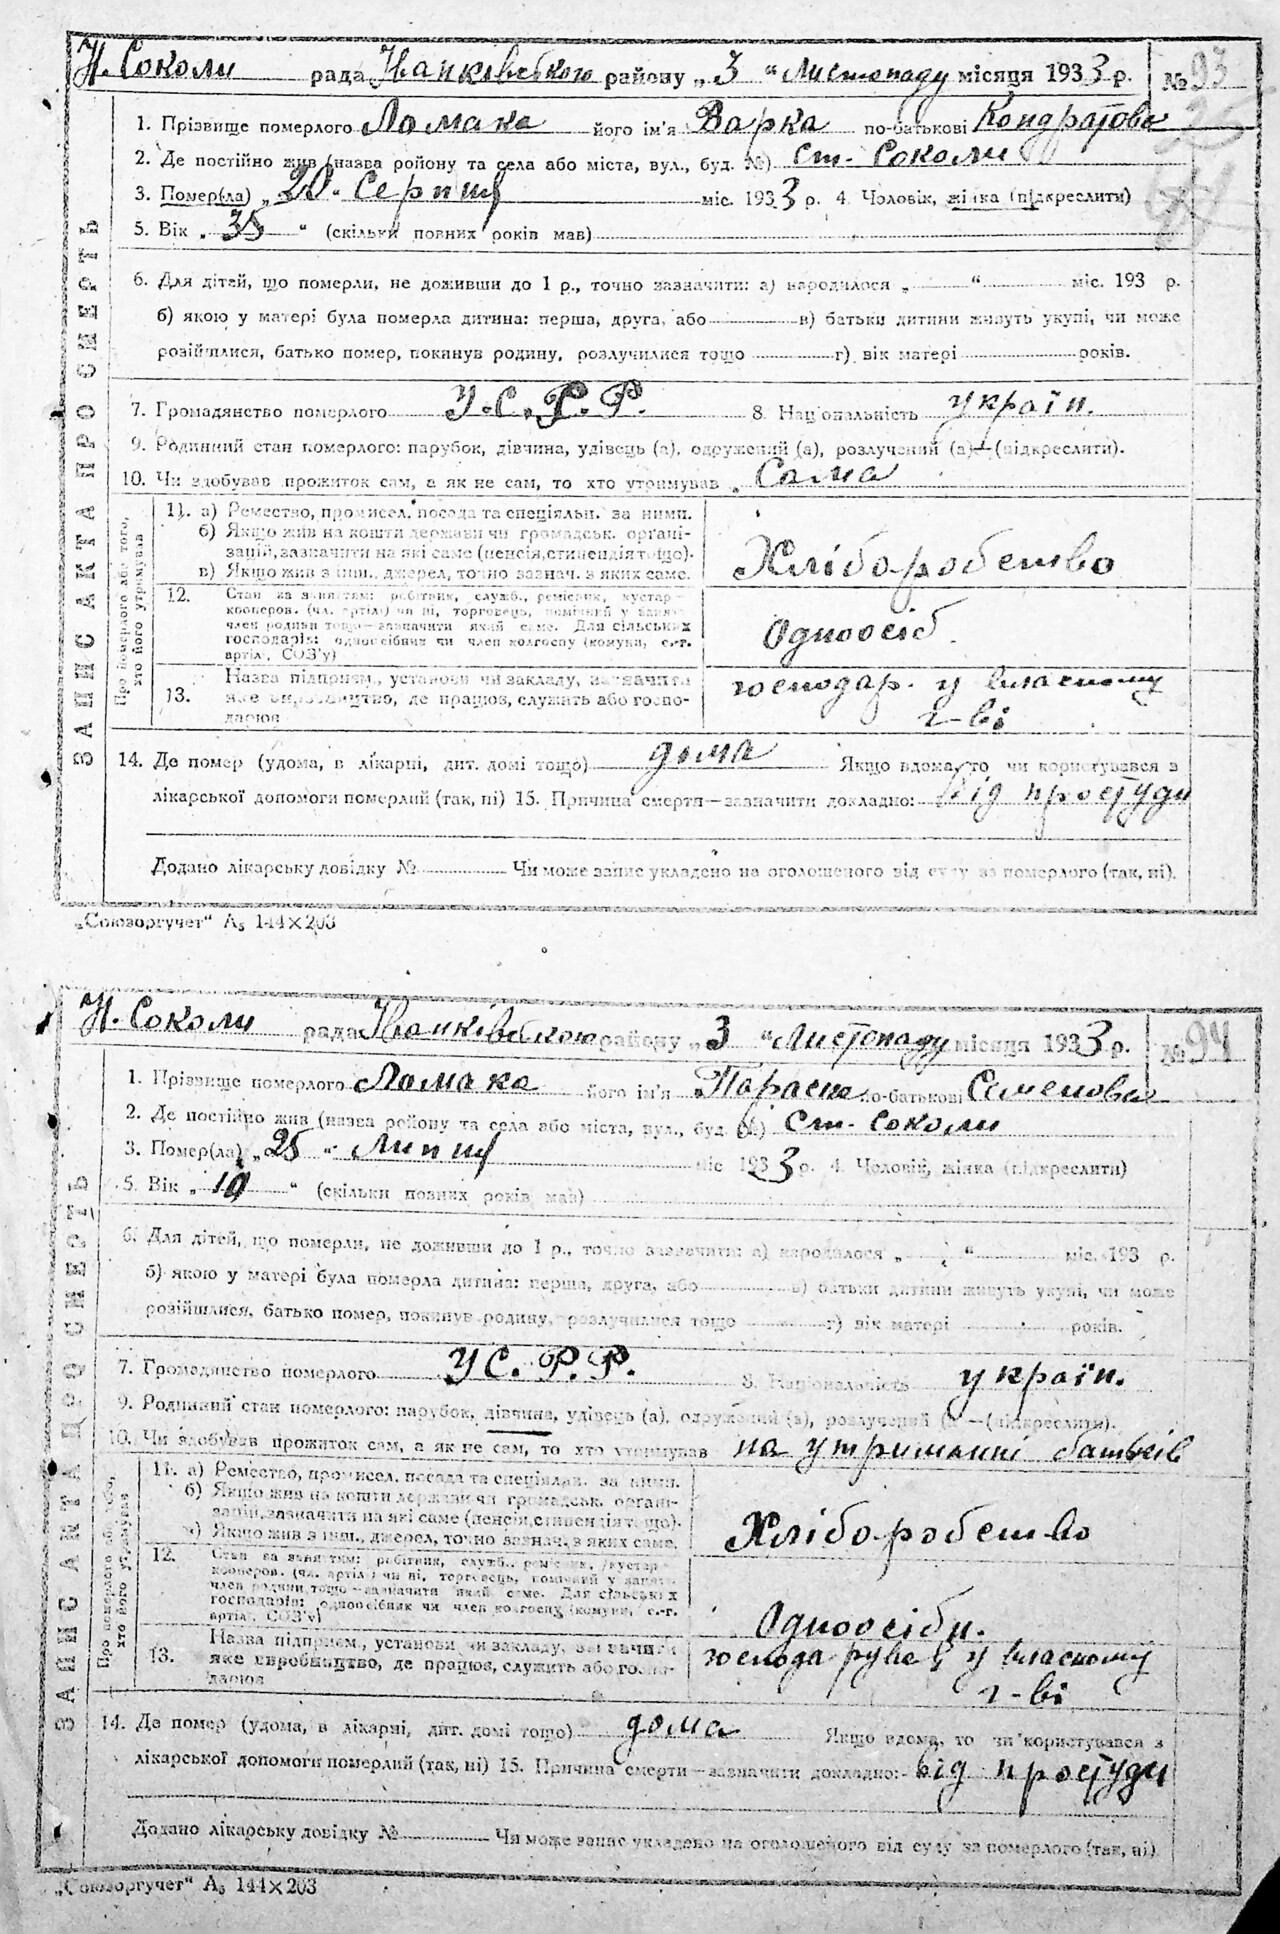 Н. Соколи рада Іванківського району „3“ Листопаду місяця 1933 р. № 93
1. Прізвище померлого Ломака його ім'я Варка по-батькові Кондратова
2. Де постійно жив (назва ройону та села або міста, вул., буд. №) ст. Соколи
3. Помер(ла) „20. Серпня міс. 1933 р. 4. Чоловік, жінка (підкреслити)
5. Вік „35“ (скільки повних років мав)
6. Для дітей, що померли, не доживши до 1 р., точно зазначити: а) народилося „ “ міс. 193 р.
б) якою у матері була померла дитина: перша, друга, або в) батьки дитини живуть укупі, чи може
розійшлися, батько помер, покинув родину, розлучилися тощо г) вік матері років.
7. Громадянство померлого У.С.Р.Р. 8. Національність україн.
9. Родинний стан померлого: парубок, дівчина, удівець (а), одружений (а), розлучений (а)—(підкреслити).
10. Чи здобував прожиток сам, а як не сам, то хто утримував „ Сама
ЗАПИС АКТА ПРО СМЕРТЬ
Про померлого або того, хто його утримував
11. а) Ремество, промисел. посада та спеціяльн. за ними.
б) Якщо жив на кошти держави чи громадськ. органі-
зацій, зазначити на які саме (пенсія, стипендія тощо).
в) Якщо жив з інш., джерел, точно зазнач. з яких саме.
Хліборобство
12. Стан за заняттям: робітник, служб., ремісник, кустар—
кооперов. (чл. артілі) чи ні, торговець, помічний у занят.
член родини тощо—зазначити який саме. Для сільських
господарів: одноосібник чи член колгоспу (комуни, с.-г.
артілі, СОЗ'у)
Одноосіб.
13. Назва підприєм., установи чи закладу, зазначити
яке виробництво, де працює, служить або госпо-
дарює
господар. у власному
г-ві
14. Де помер (удома, в лікарні, дит. домі тощо) дома Якщо вдома, то чи користувався з
лікарської допомоги померлий (так, ні) 15. Причина смерти—зазначити докладно: від простуди
Додано лікарську довідку № Чи може запис укладено на оголошеного від суду за померлого (так, ні).
„Союзоргучет“ А₅ 144×203
Н. Соколи рада Іванківською району „3“ Листопаду місяця 1933 р. № 94
1. Прізвище померлого Ломака його ім'я Параска по-батькові Семенова
2. Де постійно жив (назва ройону та села або міста, вул., буд. №) ст. Соколи
3. Помер(ла) „25“ Липня міс 1933 р. 4. Чоловік, жінка (підкреслити)
5. Вік „10“ (скільки повних років мав)
6. Для дітей, що померли, не доживши до 1 р., точно зазначити: а) народилося „ “ міс. 193 р.
б) якою у матері була померла дитина: перша, друга, або в) батьки дитини живуть укупі, чи може
розійшлися, батько помер, покинув родину, розлучилися тощо г) вік матері років.
7. Громадянство померлого УС.Р.Р. 8. Національність україн.
9. Родинний стан померлого: парубок, дівчина, удівець (а), одружений (а), розлучений (а)—(підкреслити).
10. Чи здобував прожиток сам, а як не сам, то хто утримував на утриманні батьків
ЗАПИС АКТА ПРО СМЕРТЬ
Про померлого або того, хто його утримував
11. а) Ремество, промисел. посада та спеціялн. за ними.
б) Якщо жив на кошти держави чи громадськ. органі-
зацій, зазначити на які саме (пенсія, стипендія тощо).
в) Якщо жив з інш., джерел, точно зазнач. з яких саме.
Хліборобство
12. Стан за заняттям: робітник, служб., ремісник, кустар—
кооперов. (чл. артілі) чи ні, торговець, помічний у занят.
член родини тощо—зазначити який саме. Для сільських
господарів: одноосібник чи член колгоспу (комуни, с.-г.
артілі, СОЗ'у)
Одноосібн.
13. Назва підприєм., установи чи закладу, зазначити
яке виробництво, де працює, служить або госпо-
дарює
господарував у власному
г-ві
14. Де помер (удома, в лікарні, дит. домі тощо) дома Якщо вдома, то чи користувався з
лікарської допомоги померлий (так, ні) 15. Причина смерти—зазначити докладно: від простуди
Додано лікарську довідку № Чи може запис укладено на оголошеного від суду за померлого (так, ні)
„Союзоргучет“ А₅ 144×203